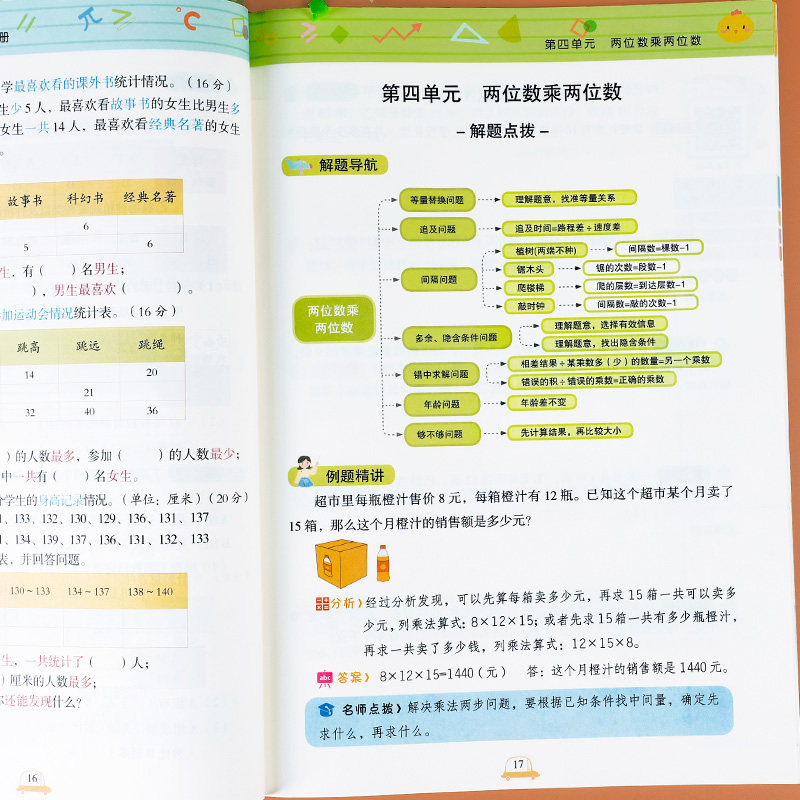 册
学最喜欢看的课外书统计情况。(16分)
生少5人，最喜欢看故事书的女生比男生多
女生一共14人，最喜欢看经典名著的女生
。
故事书 科幻书 经典名著
6
5 6
生，有( )名男生；
)，男生最喜欢( )。
加运动会情况统计表。(16分)
跳高 跳远 跳绳
14 20
21
32 40 36
)的人数最多，参加( )的人数最少；
中一共有( )名女生。
分学生的身高记录情况。(单位：厘米)(20分)
1、133、132、130、129、136、131、137
1、134、139、137、136、131、132、133
表，并回答问题。
130~133 134~137 138~140
生，一共统计了( )人；
)厘米的人数最多；
还能发现什么？
16
第四单元 两位数乘两位数
第四单元 两位数乘两位数
－解题点拨－
解题导航
两位数乘
两位数
等量替换问题 理解题意，找准等量关系
追及问题 追及时间=路程差÷速度差
间隔问题
植树(两端不种) 间隔数=棵数-1
锯木头 锯的次数=段数-1
爬楼梯 爬的层数=到达层数-1
敲时钟 间隔数=敲的次数-1
多余、隐含条件问题
理解题意，选择有效信息
理解题意，找出隐含条件
错中求解问题
相差结果÷某乘数多(少)的数量=另一个乘数
错误的积÷错误的乘数=正确的乘数
年龄问题 年龄差不变
够不够问题 先计算结果，再比较大小
例题精讲
超市里每瓶橙汁售价8元，每箱橙汁有12瓶。已知这个超市某个月卖了
15箱，那么这个月橙汁的销售额是多少元?
分析》经过分析发现，可以先算每箱卖多少元，再求15箱一共可以卖多
少元，列乘法算式：8×12×15；或者先求15箱一共有多少瓶橙汁，
再求一共卖了多少钱，列乘法算式：12×15×8。
abc 答案》 8×12×15=1440(元) 答：这个月橙汁的销售额是1440元。
名师点拨》解决乘法两步问题，要根据已知条件找中间量，确定先
求什么，再求什么。
17